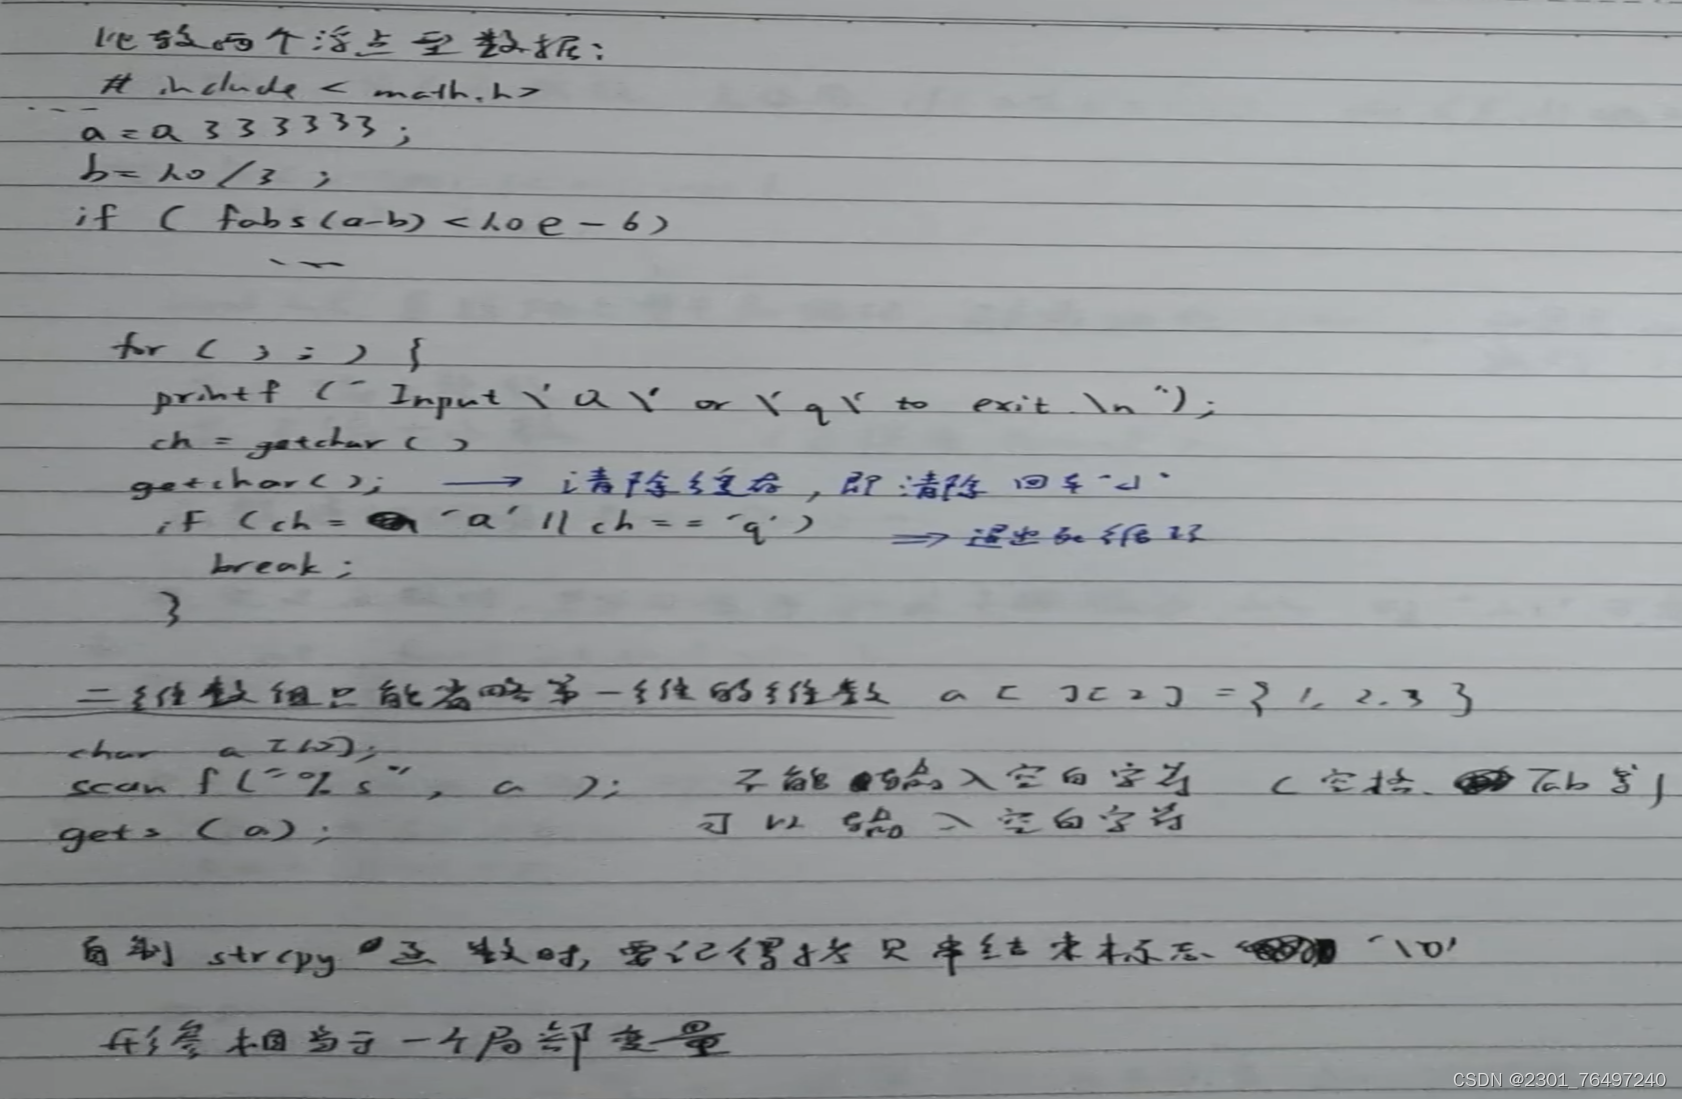 比较两个浮点型数据:
# include < math.h>
...
a = 0.333333;
b = 1.0 / 3;
if ( fabs(a-b) < 1.0e-6)
...
for ( ; ; ) {
printf (" Input \'a\' or \'q\' to exit.\n");
ch = getchar ( )
getchar( ); → 清除缓存,即清除回车"↵"
if (ch = 'a' || ch == 'q') ⇒ 退出死循环
break;
}
二维数组只能省略第一维的维数 a[ ][2] = {1, 2, 3}
char a [10];
scanf ("%s", a ); 不能输入空白字符 (空格、Tab等)
gets (a); 可以输入空白字符
自制 strcpy 函数时,要记得拷贝串结束标志 '\0'
形参相当于一个局部变量
CSDN @2301_76497240